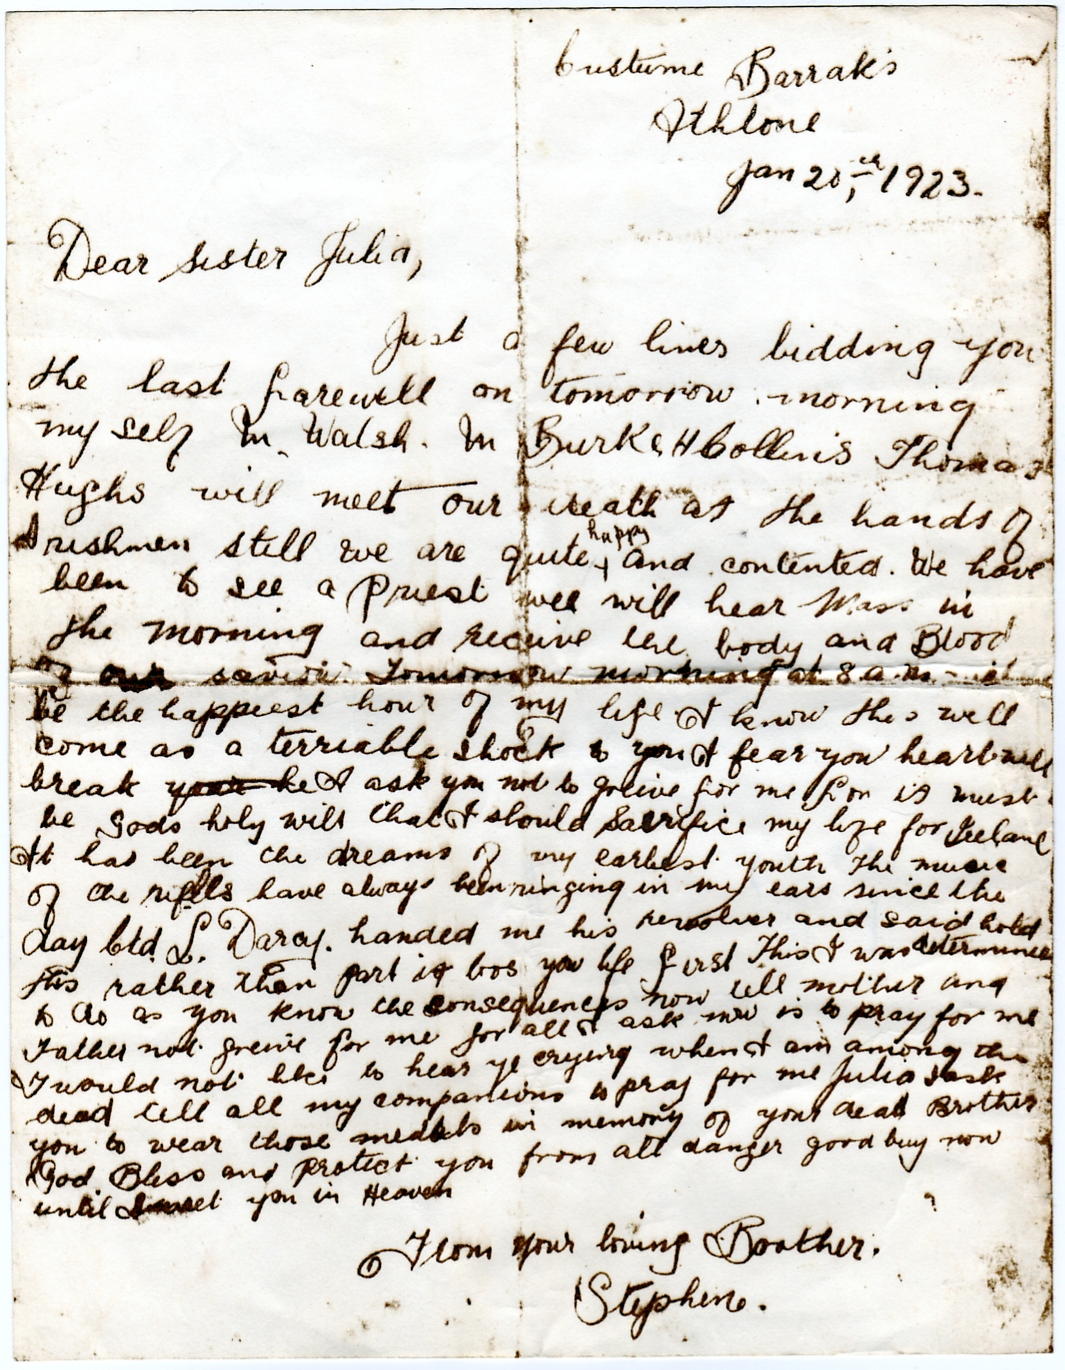 Custume Barraks
Athlone
Jan 20th, 1923.
Dear Sister Julia,
Just a few lines bidding you
the last farewell on tomorrow morning
my self M. Walsh. M Burke H Collins Thomas
Hughs will meet our death at the hands of
Irishmen still we are quite happy and contented. We have
been to see a Priest wee will hear Mass in
the morning and receive the body and Blood
of our saviour. Tomorrow morning at 8 a.m.
be the happiest hour of my life I know this will
come as a terriable shock to you I fear you heart will
break your he I ask you not to greive for me for it must
be Gods holy will that I should Sacrifice my life for Ireland
It has been the dreams of my earliest youth the music
of the rifles have always been ringing in my ears since the
day Ctd. L. Darcy. handed me his revolver and said hold
this rather than part it loos you life first This I was determined
to do as you know the consequences now tell mother and
Father not greive for me for all I ask now is to pray for me
I would not like to hear ye crying when I am among the
dead tell all my companions to pray for me Julia I ask
you to wear those medals in memory of your dead Brother
God Bless and protect you from all danger good buy now
until I meet you in Heaven
From your loving Brother.
Stephen.